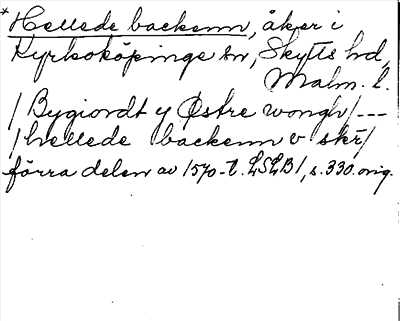 * Hellede backenn, åker i
Kyrkoköpinge sn, Skytts hd,
Malm. l.
/ Bygiordt y Østre wongh / ---
/ hellede backenn v skr /
förra delen av 1570-t. LSLB1, s. 330. orig.